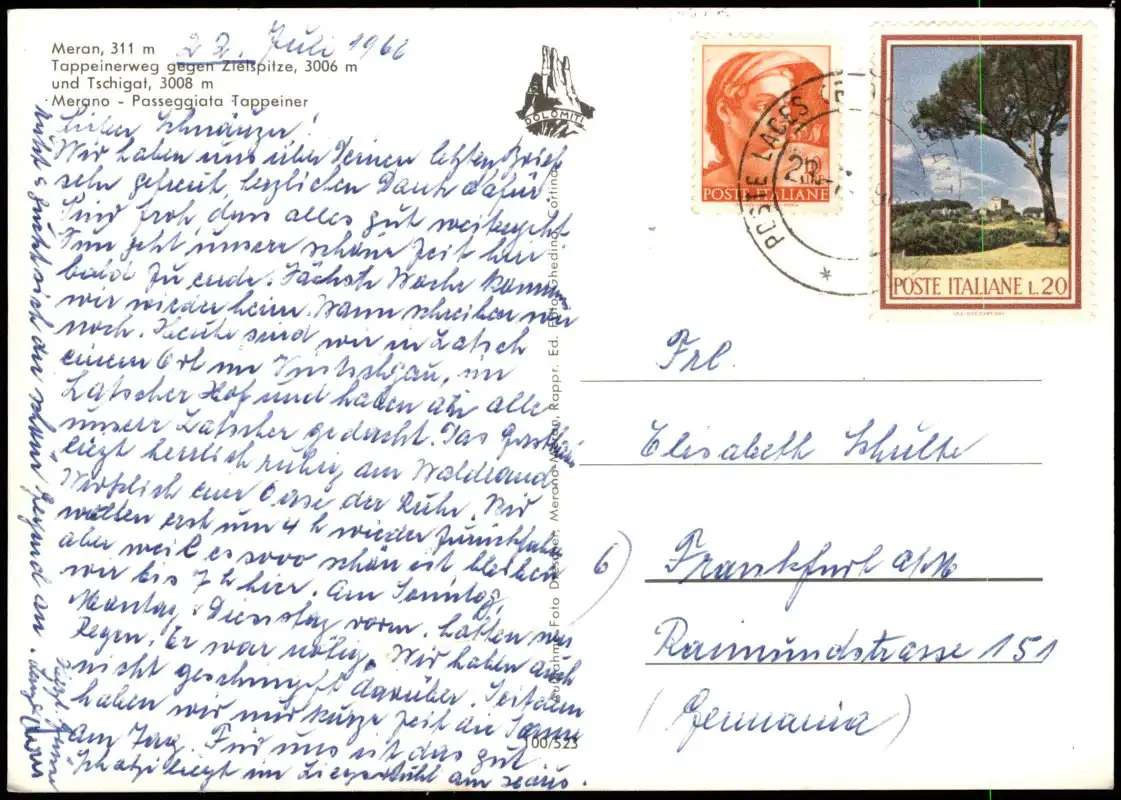 Meran, 311 m
Tappeinerweg gegen Zielspitze, 3006 m
und Tschigat, 3008 m
Merano - Passeggiata Tappeiner
22. Juli 1966
DOLOMITI
Lieber Schnäuzer!
Wir haben uns über Deinen letzten Brief
sehr gefreut, herzlichen Dank dafür.
Sind froh, dass alles gut weitergeht
Nun geht unsere schöne Zeit hier
bald zu ende. Nächste Woche kommen
wir wieder heim. Wann schreiben wir
noch. Heute sind wir in Latsch
einem Ort im Vintschgau, im
Latscher Hof und haben an alle
unsere Latscher gedacht. Das Gasthaus
liegt herrlich ruhig am Waldrand
Wirklich eine Oase der Ruhe. Wir
wollten erst um 4 h wieder zurückfahren
aber weil es sooo schön ist bleiben
wir bis 7 h hier. Am Sonntag,
Montag, Dienstag vorm. hatten wir
Regen. Er war nötig. Wir haben auch
nicht geschimpft darüber. Seitdem
haben wir nur kurze Zeit die Sonne
am Tag. Für uns ist das gut.
Schatzi liegt im Liegestuhl am
guckt sich die schöne Gegend an.
Herzl. Grüsse
Foto Ghedina, Cortina
Foto Drescher, Merano-Meran, Rappr. Ed.
100/523
POSTE ITALIANE
POSTE LACES
POSTE ITALIANE L.20
Frl.
Elisabeth Schulte
6) Frankfurt a/M
Raimundstrasse 151
(Germania)